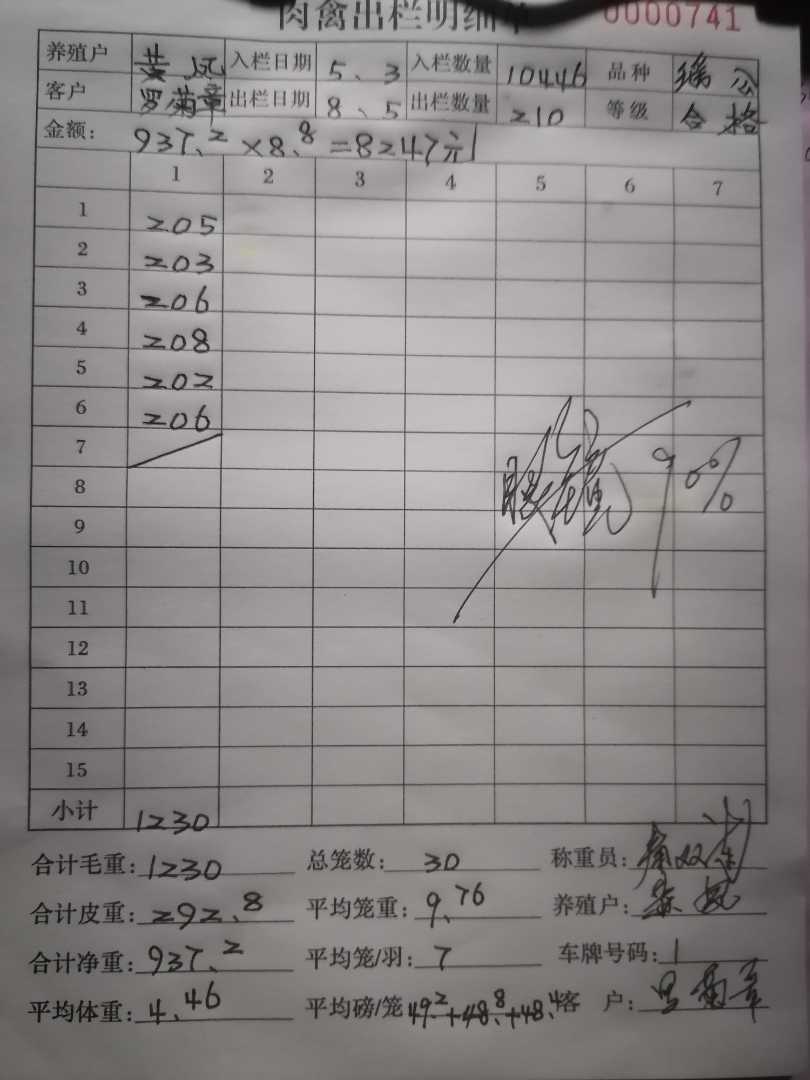 肉禽出栏明细单 0000741
养殖户 黄凤 入栏日期 5、3 入栏数量 10446 品种 瑶公
客户 罗菊章 出栏日期 8、5 出栏数量 210 等级 合格
金额: 937.2 ×8.8 =8247元
1 2 3 4 5 6 7
1 205
2 203
3 206
4 208
5 202
6 206
7
8
9
10
11
12
13
14
15
小计 1230
90%
合计毛重: 1230 总笼数: 30 称重员:
合计皮重: 292.8 平均笼重: 9.76 养殖户: 黄凤
合计净重: 937.2 平均笼/羽: 7 车牌号码: 1
平均体重: 4.46 平均磅/笼 49.2+48.8+48.4 客 户: 罗菊章